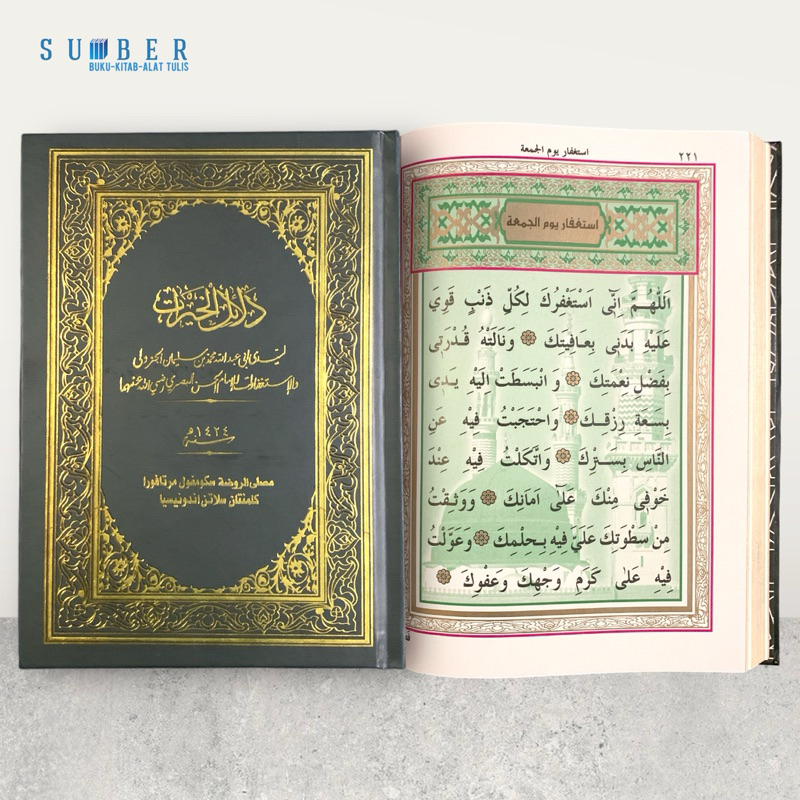 SUMBER
BUKU-KITAB-ALAT TULIS
دلائل الخيرات
لسيدي أبي عبد الله محمد بن سليمان الجزولي
والاستغفارات للإمام الحسن البصري رضي الله عنهما
سنة ١٤٢٤ﻫ
مصلى الروضة سكومفول مرتافورا
كلمنتان سلاتن اندونيسيا
استغفار يوم الجمعة
٢٢١
استغفار يوم الجمعة
اَللّٰهُمَّ اِنِّى اَسْتَغْفِرُكَ لِكُلِّ ذَنْبٍ قَوِيَ
عَلَيْهِ بَدَنِى بِعَافِيَتِكَ وَنَالَتْهُ قُدْرَتِى
بِفَضْلِ نِعْمَتِكَ وَ انْبَسَطَتْ اِلَيْهِ يَدِى
بِسَعَةِ رِزْقِكَ وَاحْتَجَبْتُ فِيْهِ عَنِ
النَّاسِ بِسِتْرِكَ وَاتَّكَلْتُ فِيْهِ عِنْدَ
خَوْفِى مِنْكَ عَلٰى اَمَانِكَ وَوَثِقْتُ
مِنْ سَطْوَتِكَ عَلَيَّ فِيْهِ بِحِلْمِكَ وَعَوَّلْتُ
فِيْهِ عَلٰى كَرَمِ وَجْهِكَ وَعَفْوِكَ